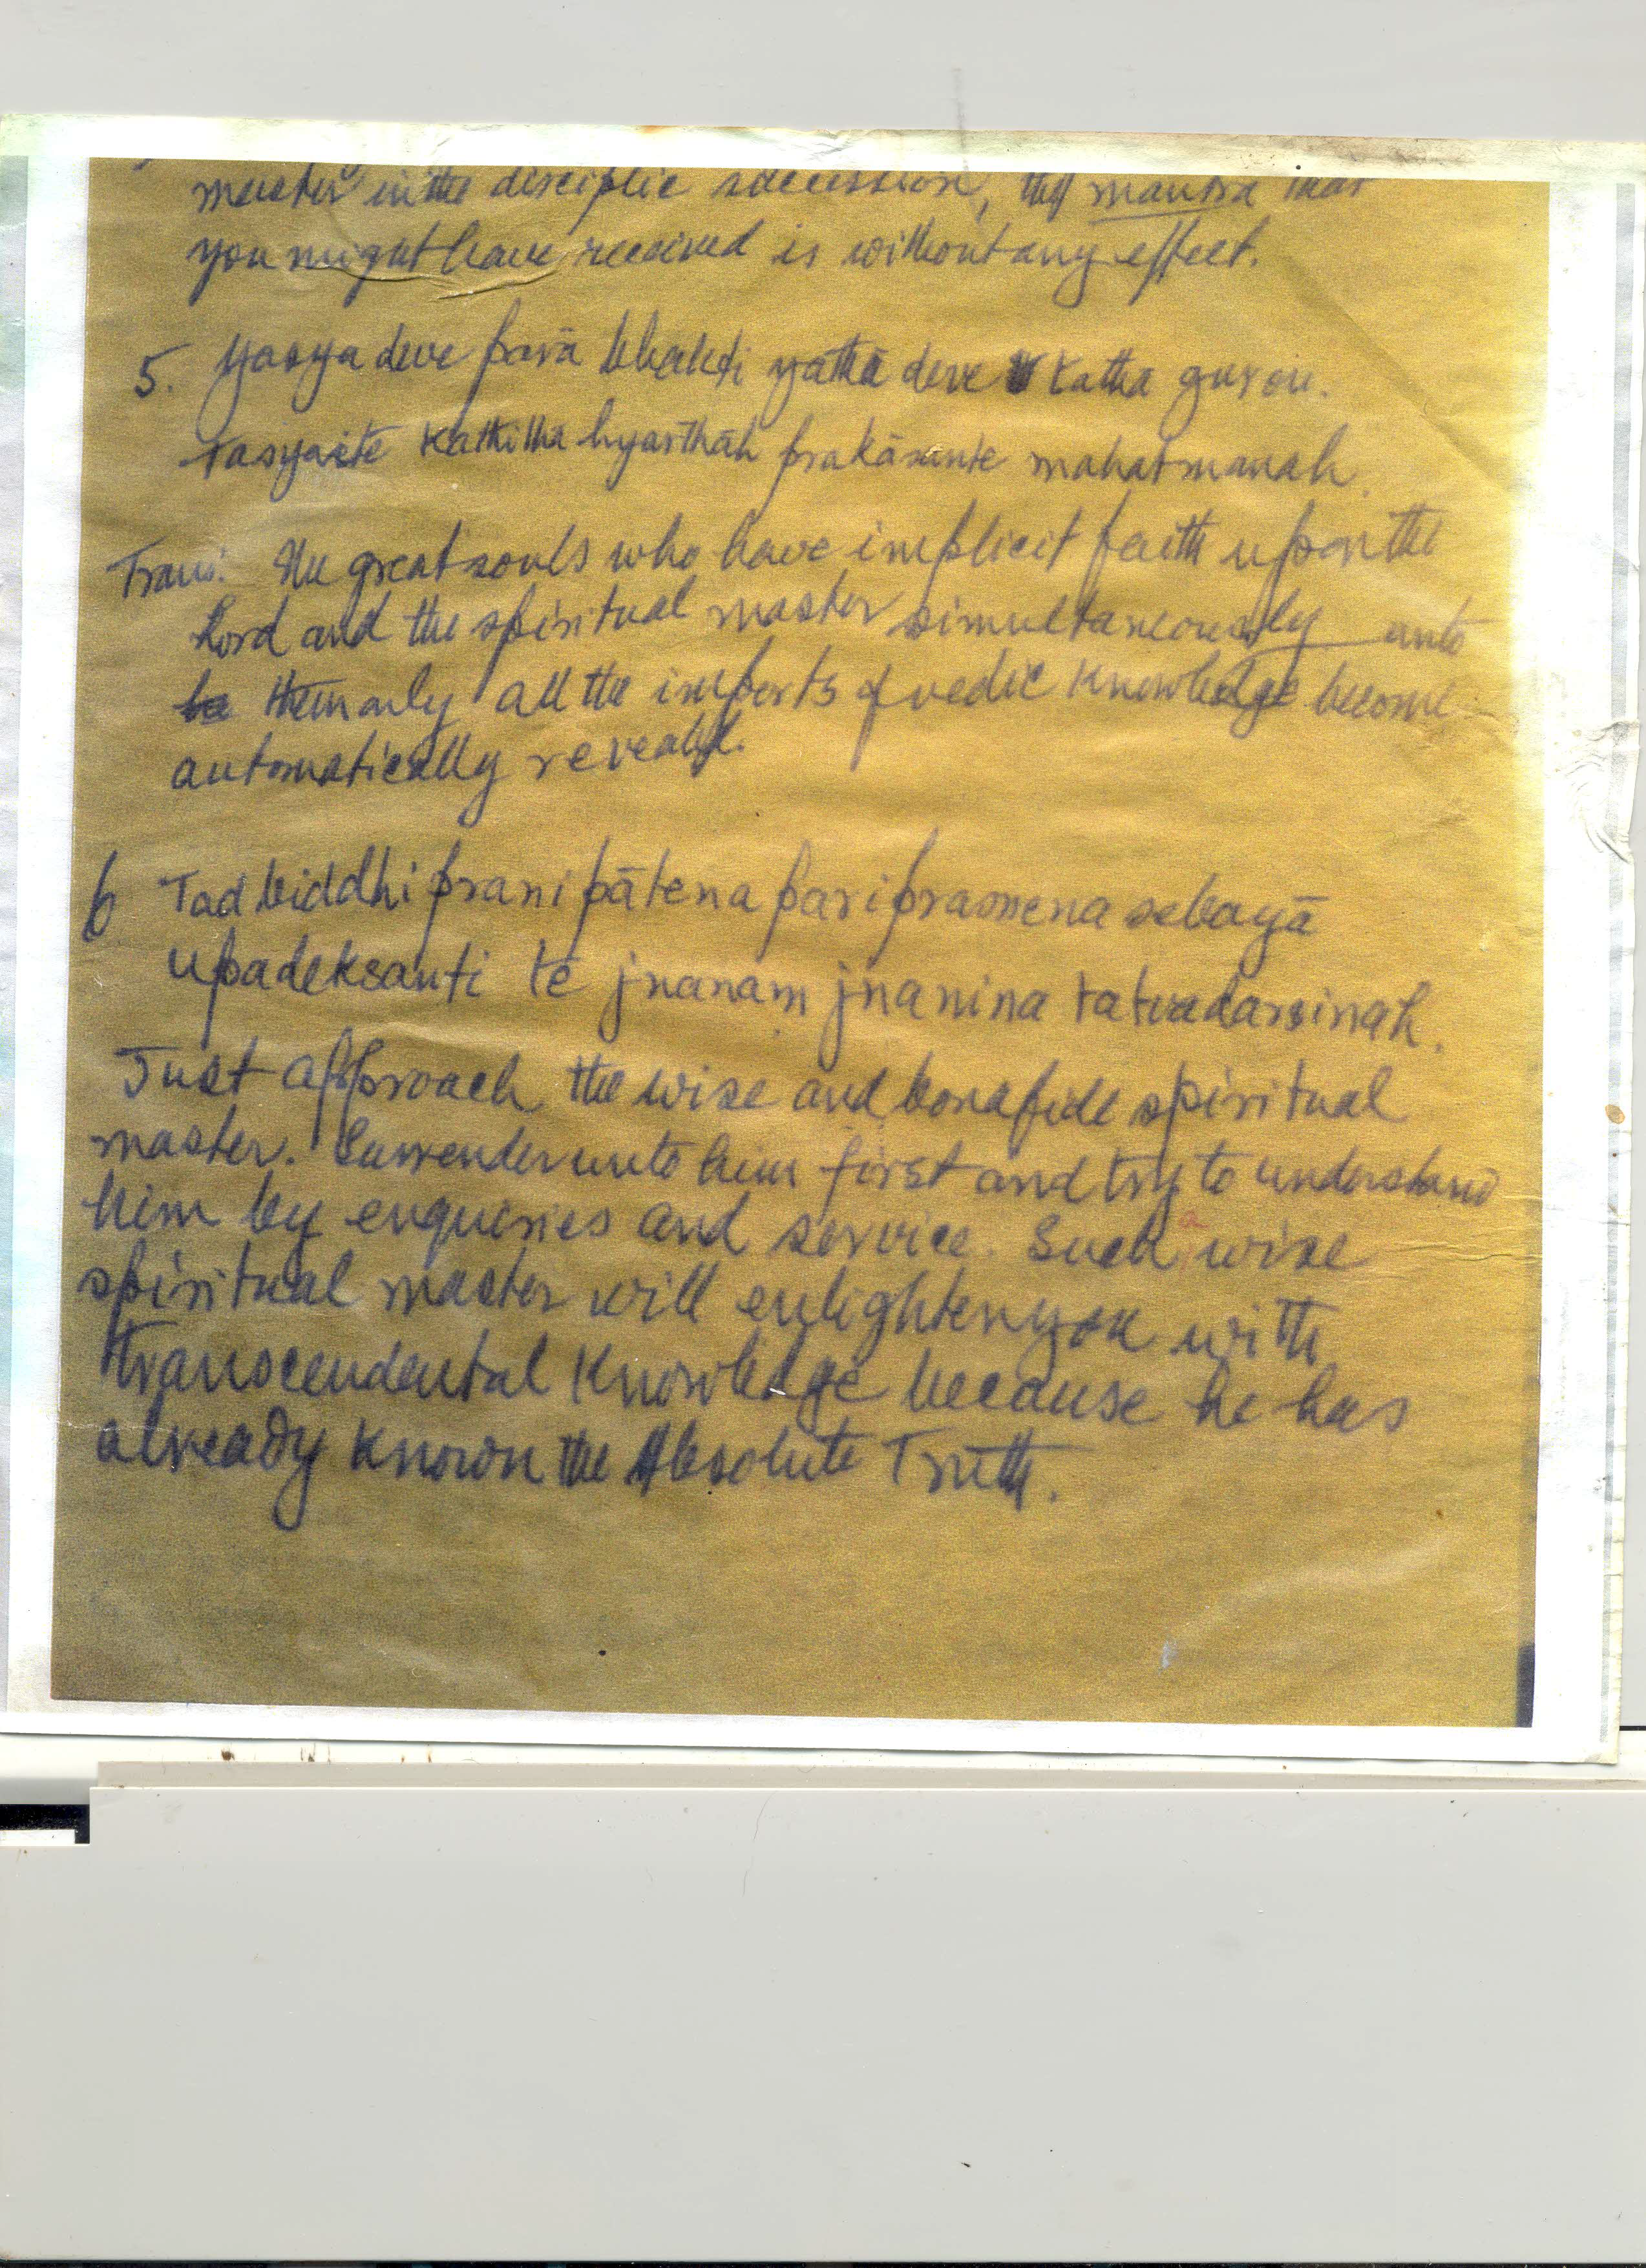 master in the disciplic succession, the mantra that
you might have received is without any effect.
5. Yasya deve parā bhakti yathā deve tatha gurou.
Tasyaite kathitha hyarthāh prakāsante mahatmanah.
Trans: The great souls who have implicit faith upon the
Lord and the spiritual master simultaneously unto
them only all the imports of vedic knowledge become
automatically revealed.
6 Tad biddhi pranipātena pariprasnena sebayā
upadeksanti te jnanam jnanina tatvadarsinah.
Just approach the wise and bonafide spiritual
master. Surrender unto him first and try to understand
him by enquiries and service. Such a wise
spiritual master will enlighten you with
transcendental knowledge because he has
already known the Absolute Truth.